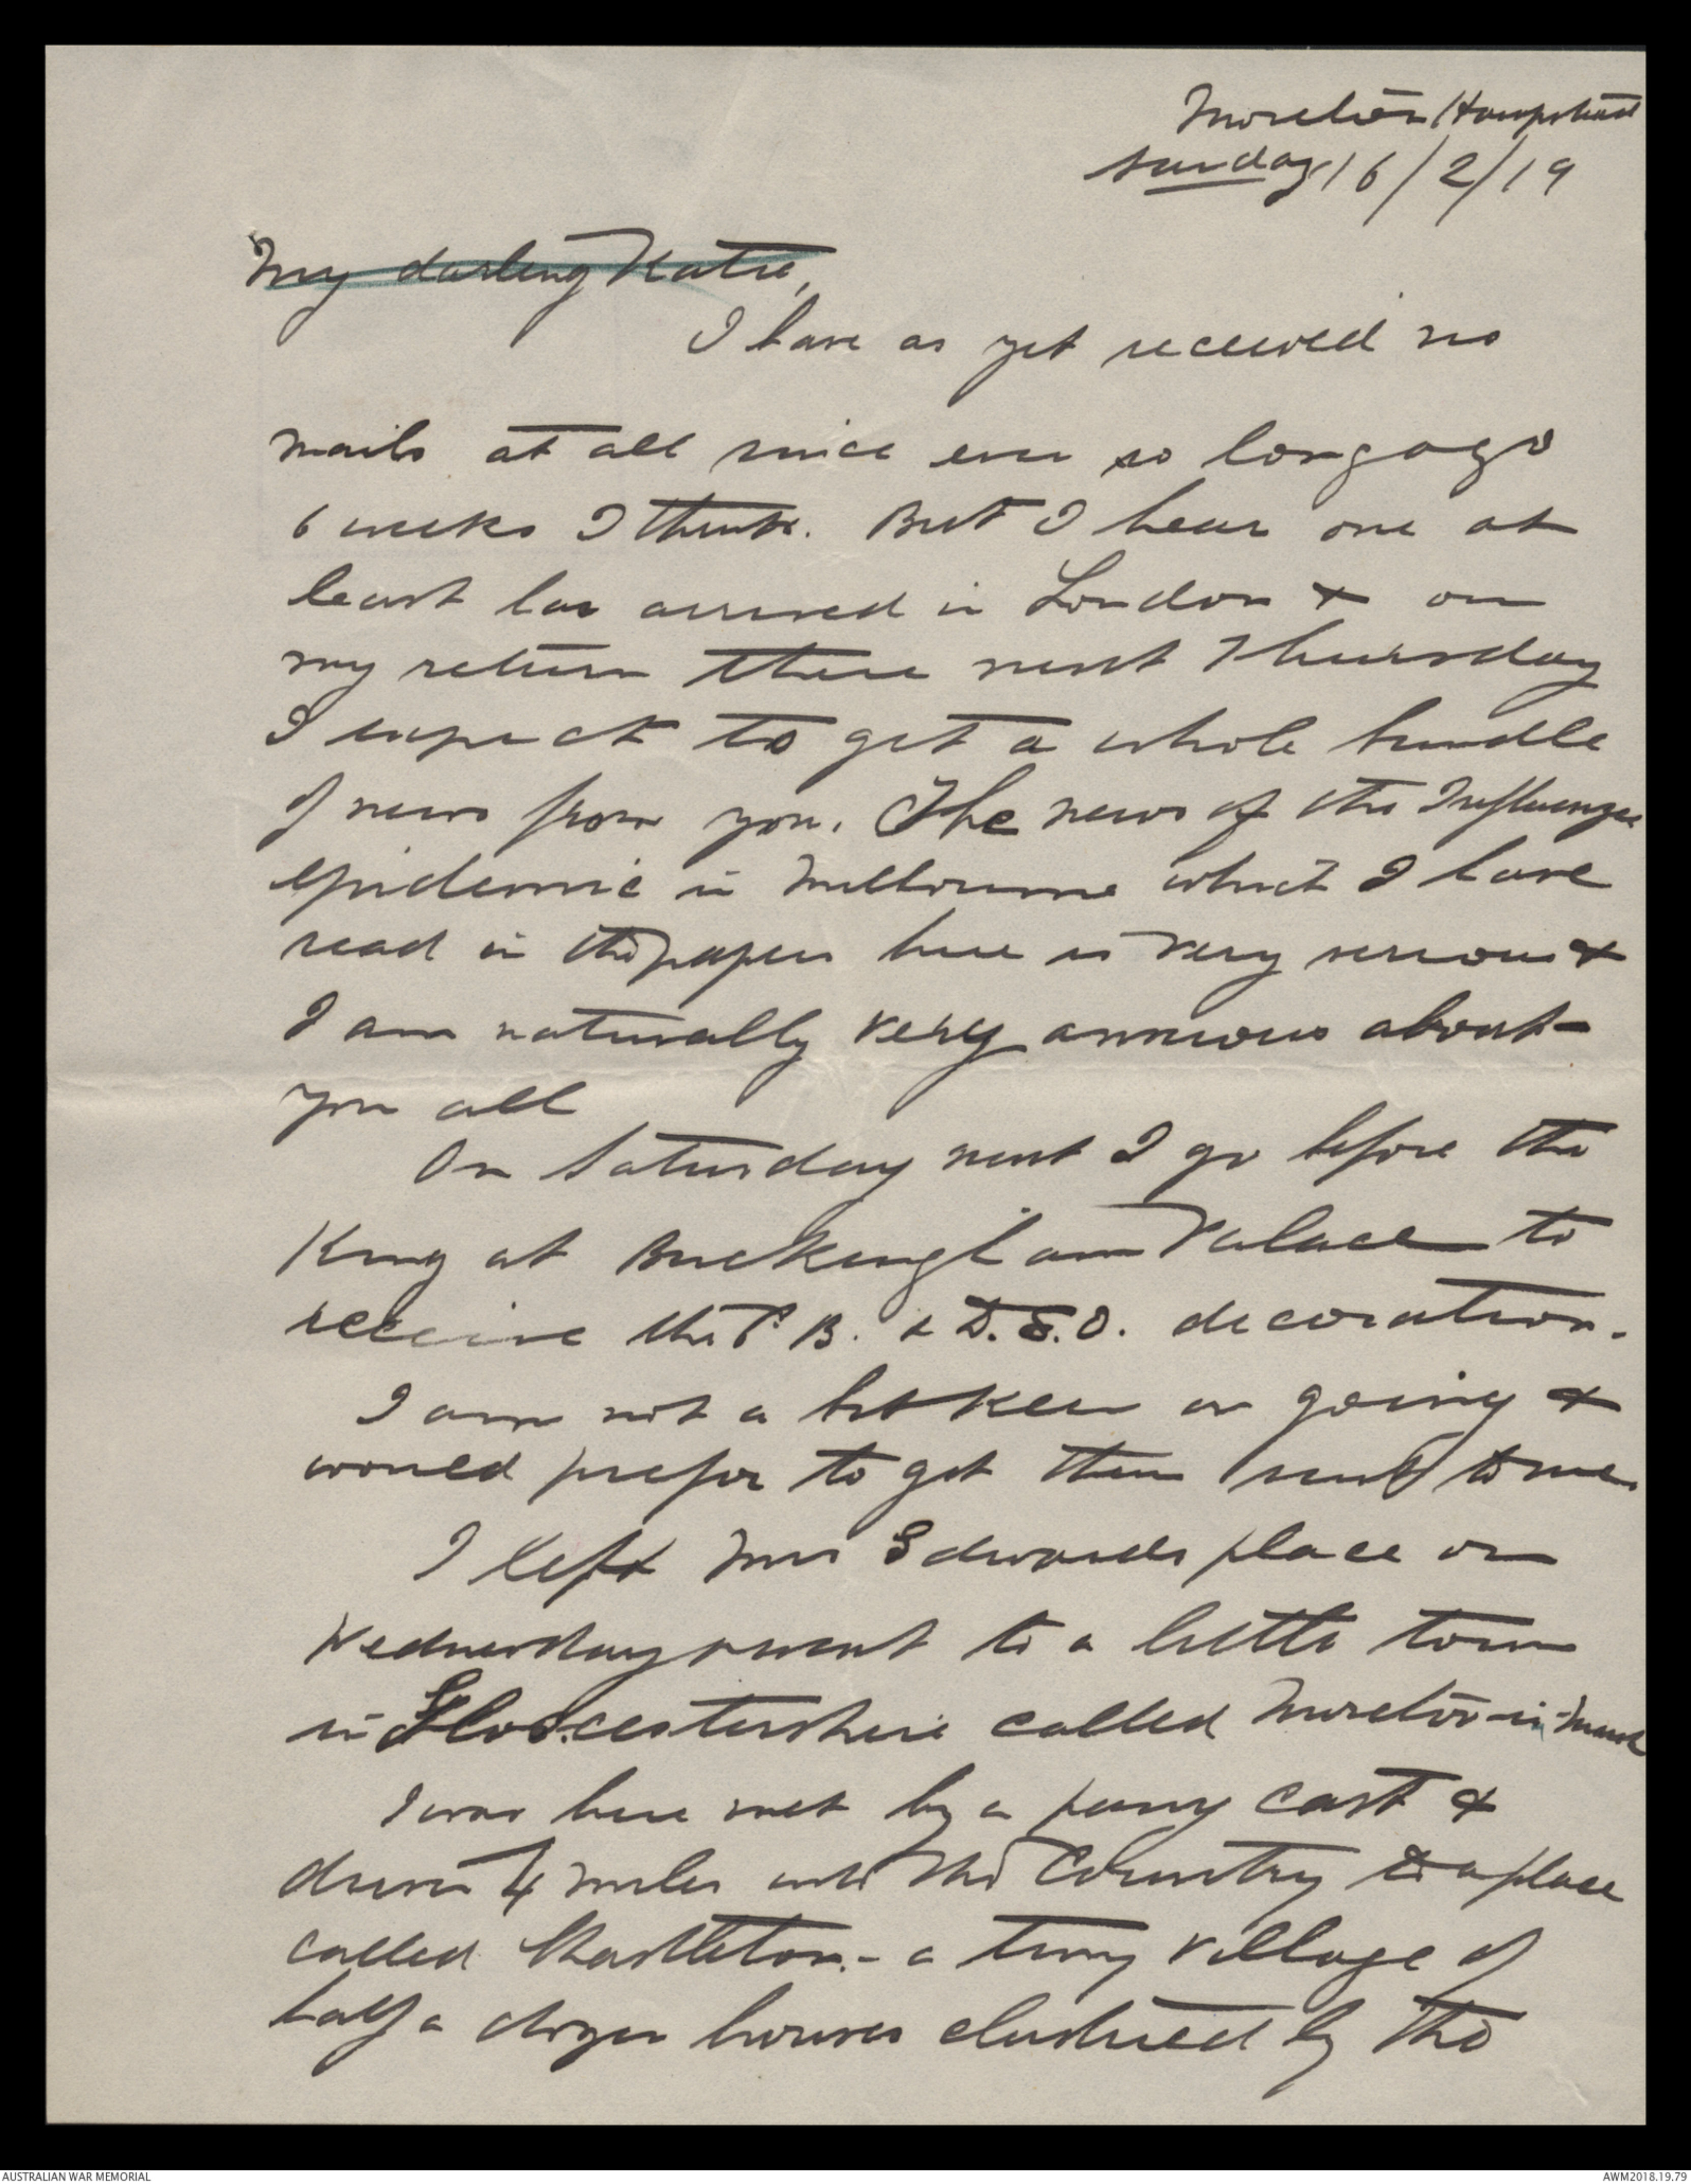 Moreton Hampstead
Sunday 16/2/19
My darling Katie,
I have as yet received no
mails at all since ever so long ago
6 weeks I think. But I hear one at
least has arrived in London & on
my return there next Thursday
I expect to get a whole bundle
of news from you. The news of the Influenza
epidemic in Melbourne which I have
read in the papers here is very serious &
I am naturally very anxious about
you all
On Saturday next I go before the
King at Buckingham Palace to
receive the C.B. & D.S.O. decoration.
I am not a bit keen on going &
would prefer to get them sent to me.
I left Mrs Edwards place on
Wednesday & went to a little town
in Gloucestershire called Moreton-in-Marsh
I was here met by a pony cart &
driven 4 miles into the Country to a place
called Chastleton - a tiny village of
half a dozen houses clustered by the
AUSTRALIAN WAR MEMORIAL
AWM2018.19.79